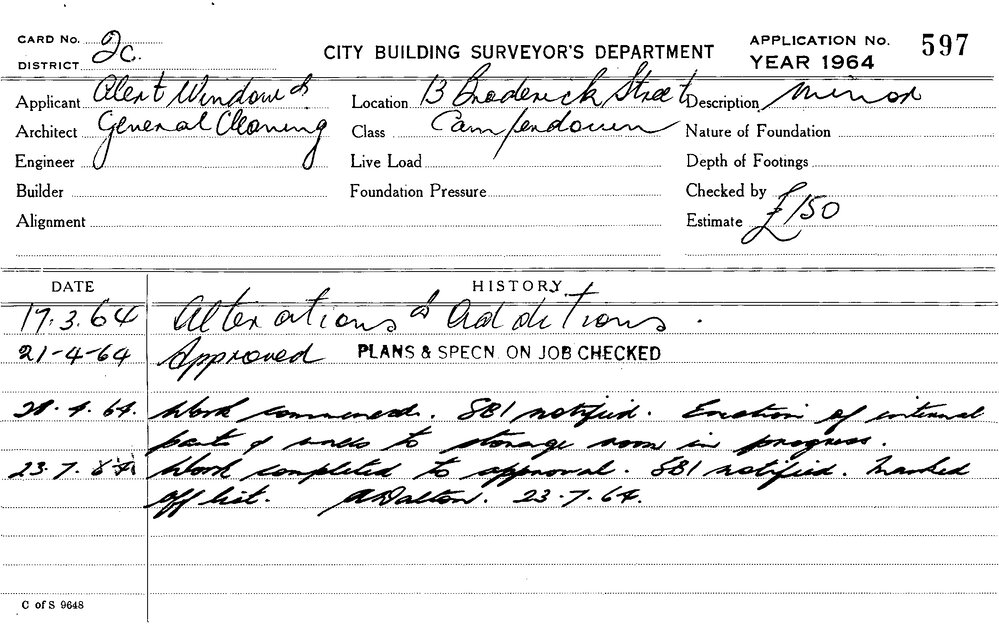 CARD No. 2c.
DISTRICT
CITY BUILDING SURVEYOR'S DEPARTMENT
APPLICATION No. 597
YEAR 1964
Applicant Alert Window &
Location 13 Broderick Street
Description Minor
Architect General Cleaning
Class Camperdown
Nature of Foundation
Engineer
Live Load
Depth of Footings
Builder
Foundation Pressure
Checked by
Alignment
Estimate £150
DATE HISTORY
17.3.64 Alterations & Additions.
21-4-64 Approved PLANS & SPECN. ON JOB CHECKED
28.4.64. Work commenced. SBI notified. Erection of internal
parts & walls to storage room in progress.
23.7.64 Work completed to approval. SBI notified. Marked
off list. A Dalton. 23.7.64.
C of S 9648